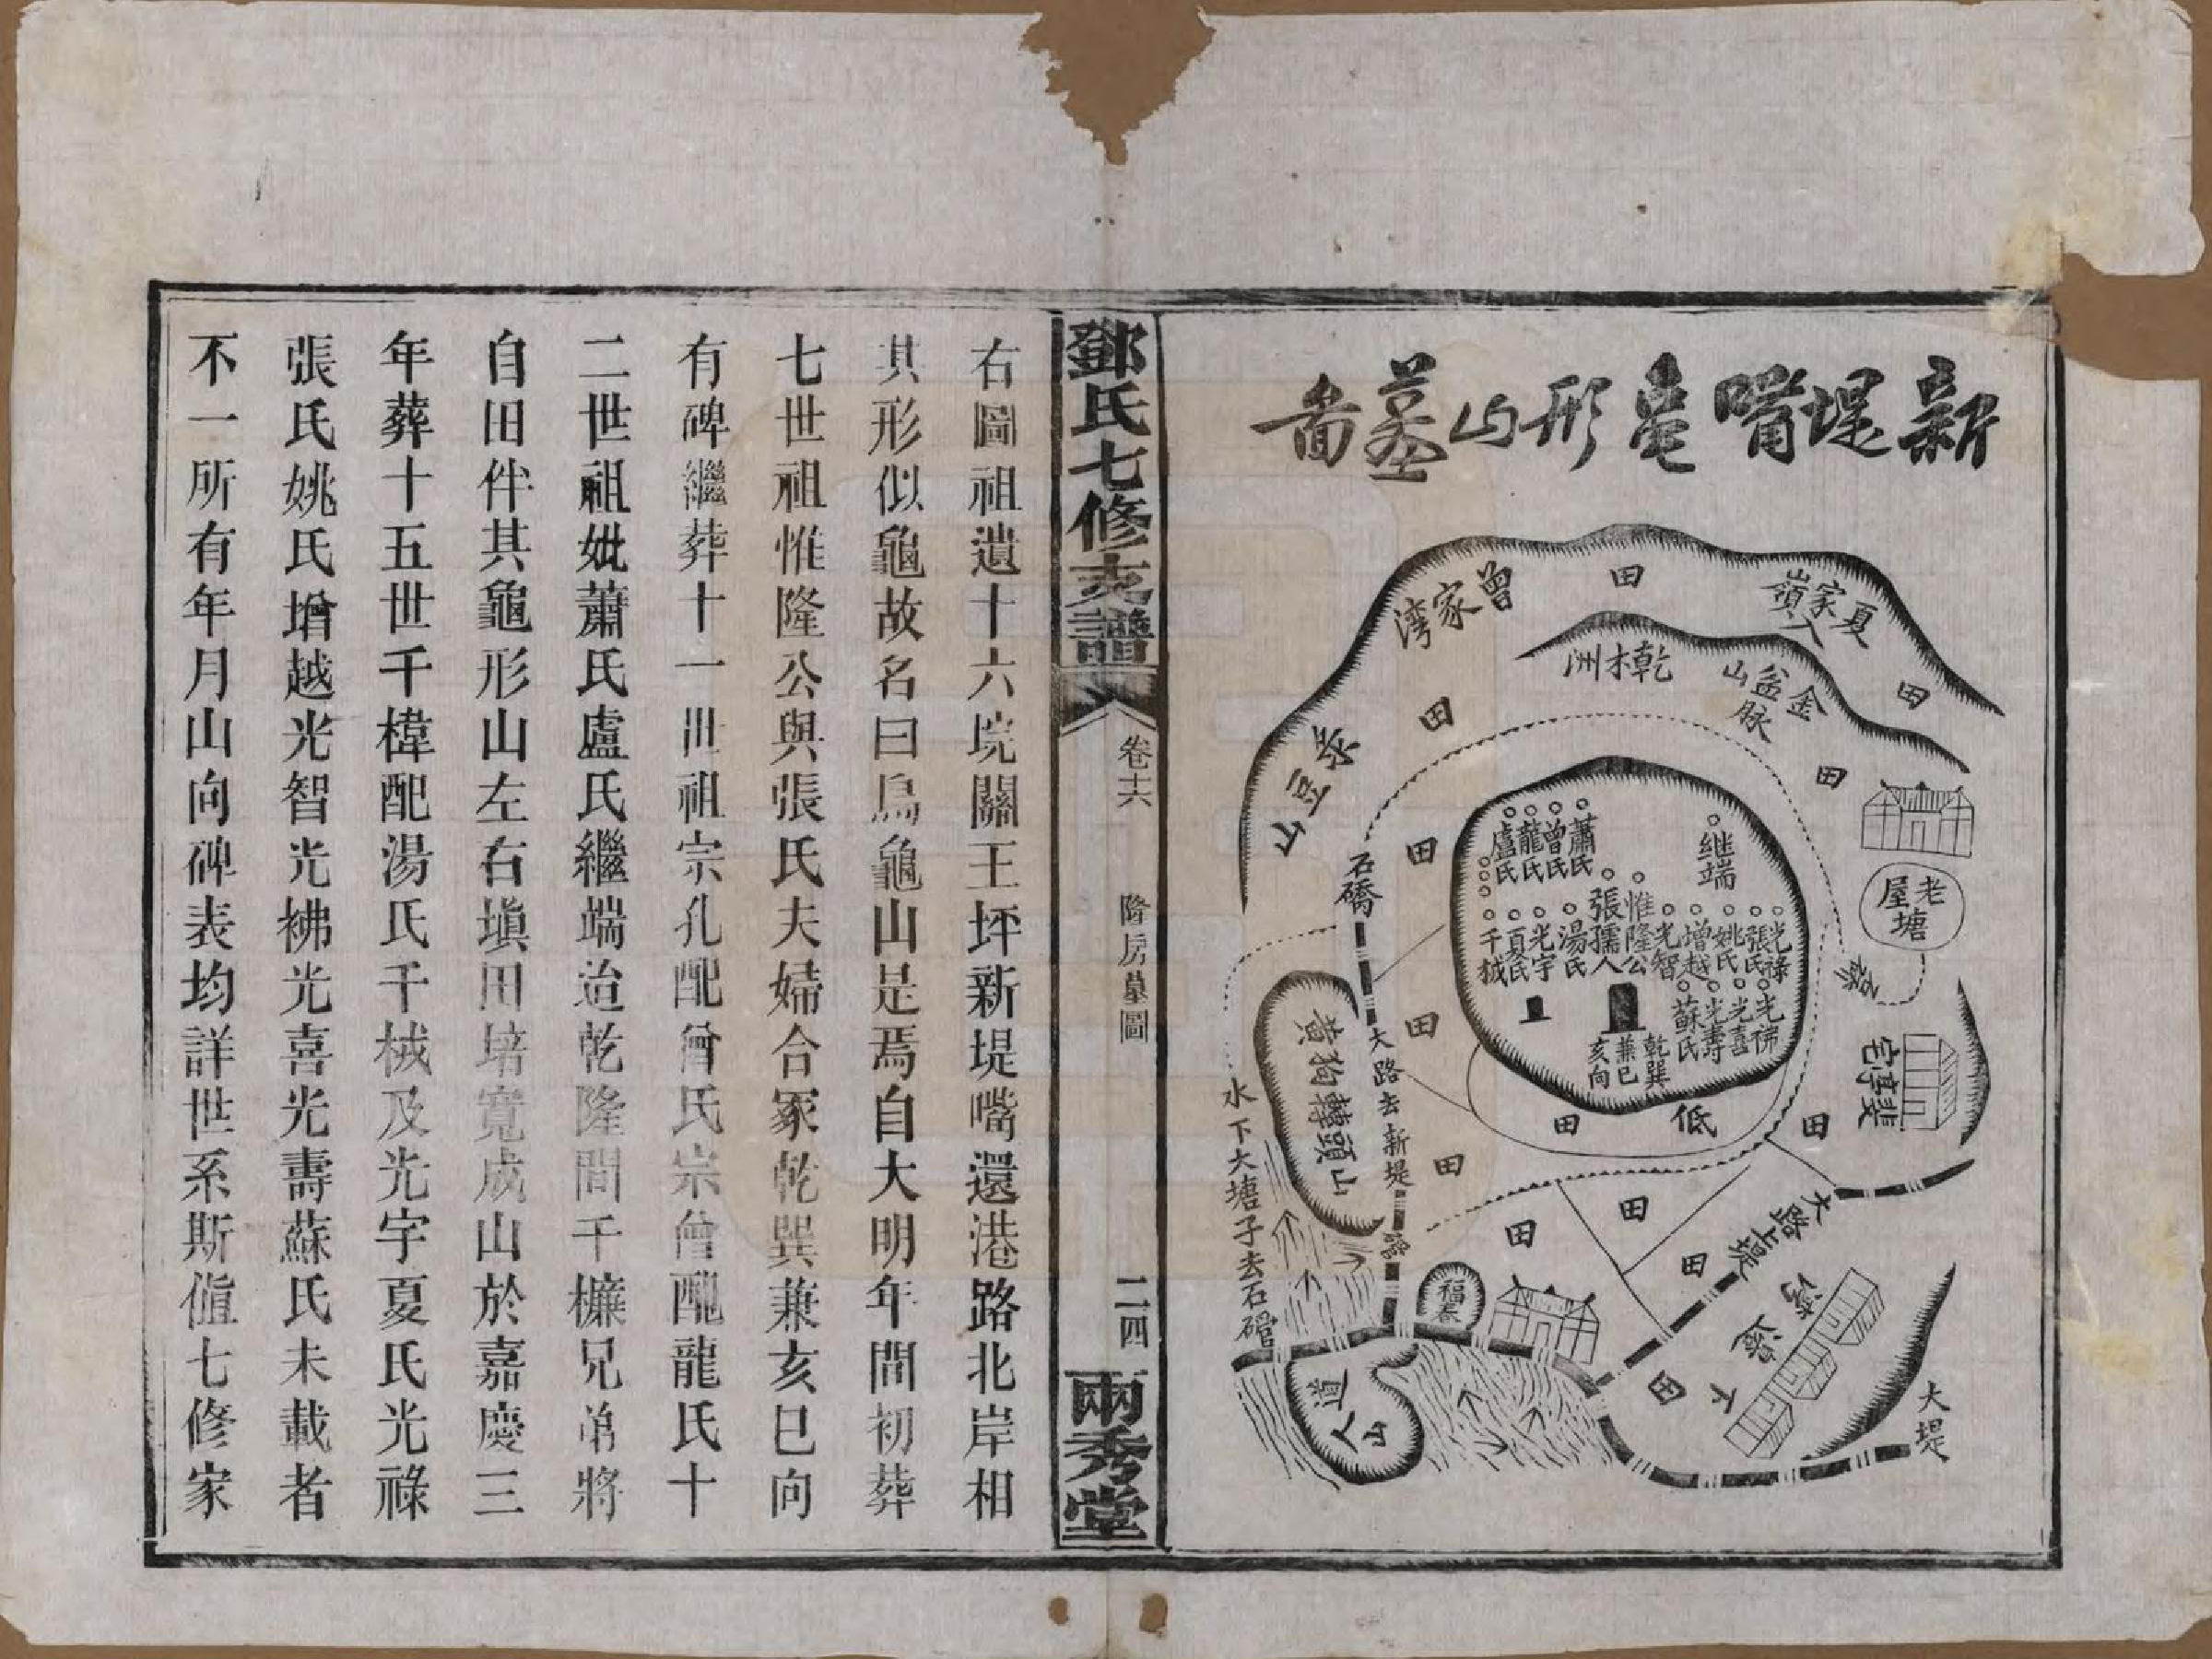 新堤嘴龜形山墓圖
夏家嶺入
田
曾家湾
田
金盆山脉
乾木洲
田
茶豆山
田
老塘屋
继端
蕭氏
曾氏
龍氏
盧氏
光祿
張氏
姚氏
增越
光智
惟隆公
張孺人
湯氏
光宇
夏氏
千棫
光祓
光喜
光壽
蘇氏
乾巽
兼巳
亥向
石礄
田
田
大路去新堤
黃狗轉頭山
水下大塘子去石磘
低
田
田
田
田
田
田
田
大路上堤
大堤
道人山
鄧氏七修支譜
卷十六
隆房墓圖
二四
兩秀堂
右圖祖遺十六垸關王坪新堤嘴還港路北岸相
其形似龜故名曰烏龜山是焉自大明年間初葬
七世祖惟隆公與張氏夫婦合冢乾巽兼亥巳向
有碑繼葬十一世祖宗孔配曾氏宗僧配龍氏十
二世祖妣蕭氏盧氏繼端迨乾隆間千槺兄弟將
自田伴其龜形山左右塡田培寬成山於嘉慶三
年葬十五世千樟配湯氏千棫及光宇夏氏光祿
張氏姚氏增越光智光祓光喜光壽蘇氏未載者
不一所有年月山向碑表均詳世系斯値七修家